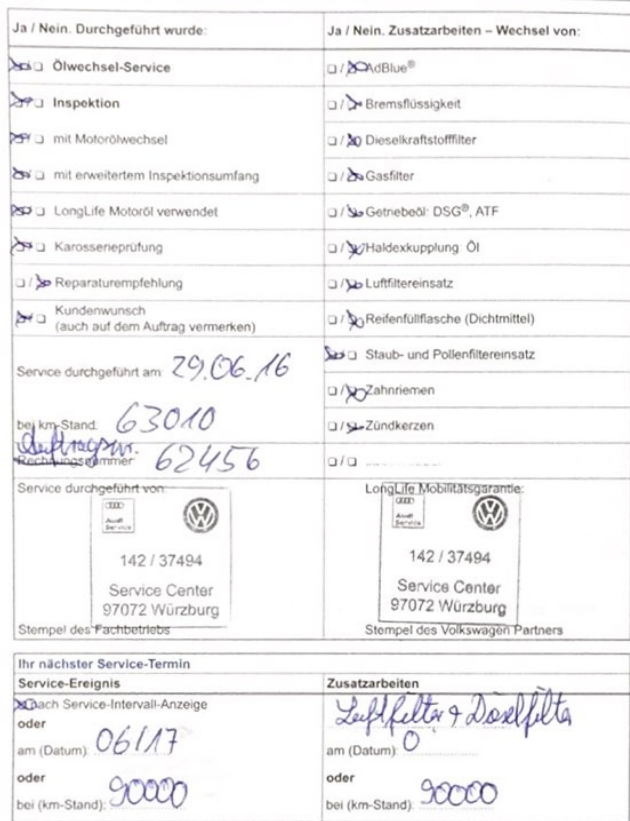 Ja / Nein. Durchgeführt wurde:
Ölwechsel-Service
Inspektion
mit Motorölwechsel
mit erweitertem Inspektionsumfang
LongLife Motoröl verwendet
Karosserieprüfung
Reparaturempfehlung
Kundenwunsch
(auch auf dem Auftrag vermerken)
Service durchgeführt am: 29.06.16
bei km-Stand: 63010
Auftragsnr.
Rechnungsnummer 62456
Service durchgeführt von:
Audi
Service
142 / 37494
Service Center
97072 Würzburg
Stempel des Fachbetriebs
Ja / Nein. Zusatzarbeiten – Wechsel von:
AdBlue®
Bremsflüssigkeit
Dieselkraftstofffilter
Gasfilter
Getriebeöl: DSG®, ATF
Haldexkupplung: Öl
Luftfiltereinsatz
Reifenfüllflasche (Dichtmittel)
Staub- und Pollenfiltereinsatz
Zahnriemen
Zündkerzen
LongLife Mobilitätsgarantie:
Audi
Service
142 / 37494
Service Center
97072 Würzburg
Stempel des Volkswagen Partners
Ihr nächster Service-Termin
Service-Ereignis
nach Service-Intervall-Anzeige
oder
am (Datum): 06/17
oder
bei (km-Stand): 90000
Zusatzarbeiten
Luftfilter + Dieselfilter
am (Datum):
oder
bei (km-Stand): 90000